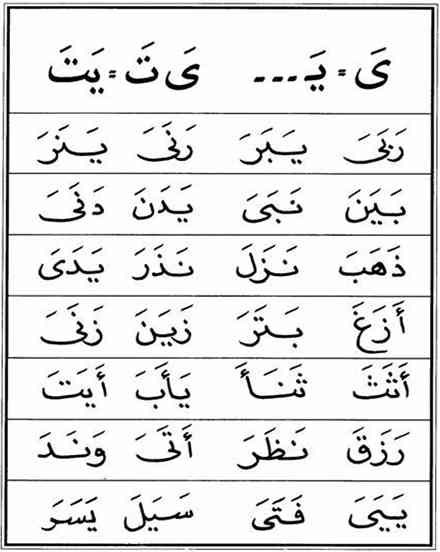 ىَ = يَـ... ىَ تَ = يَتَ
رَبَىَ يَبَرَ رَنَىَ يَنَرَ
بَيَنَ نَبَىَ يَدَنَ دَنَىَ
ذَهَبَ نَزَلَ نَذَرَ يَدَىَ
أَزَغَ بَتَرَ زَيَنَ زَنَىَ
أَثَثَ ثَنَأَ يَأَبَ أَيَتَ
رَزَقَ نَظَرَ أَتَىَ وَنَدَ
يَيَىَ فَتَىَ سَيَلَ يَسَرَ